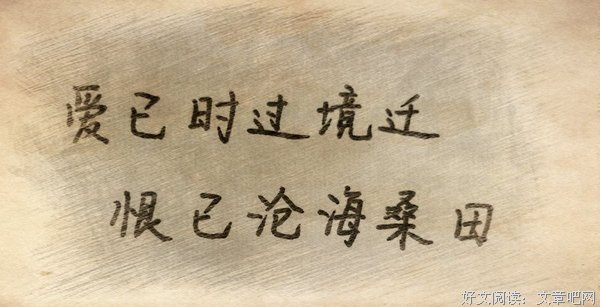 爱已时过境迁
恨已沧海桑田
好文阅读：文章吧网